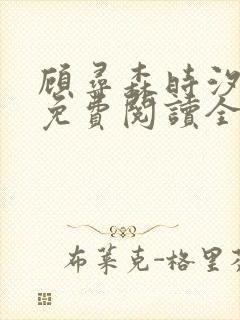 顾尋森時汐
免費閱讀全
布萊克-格里芬